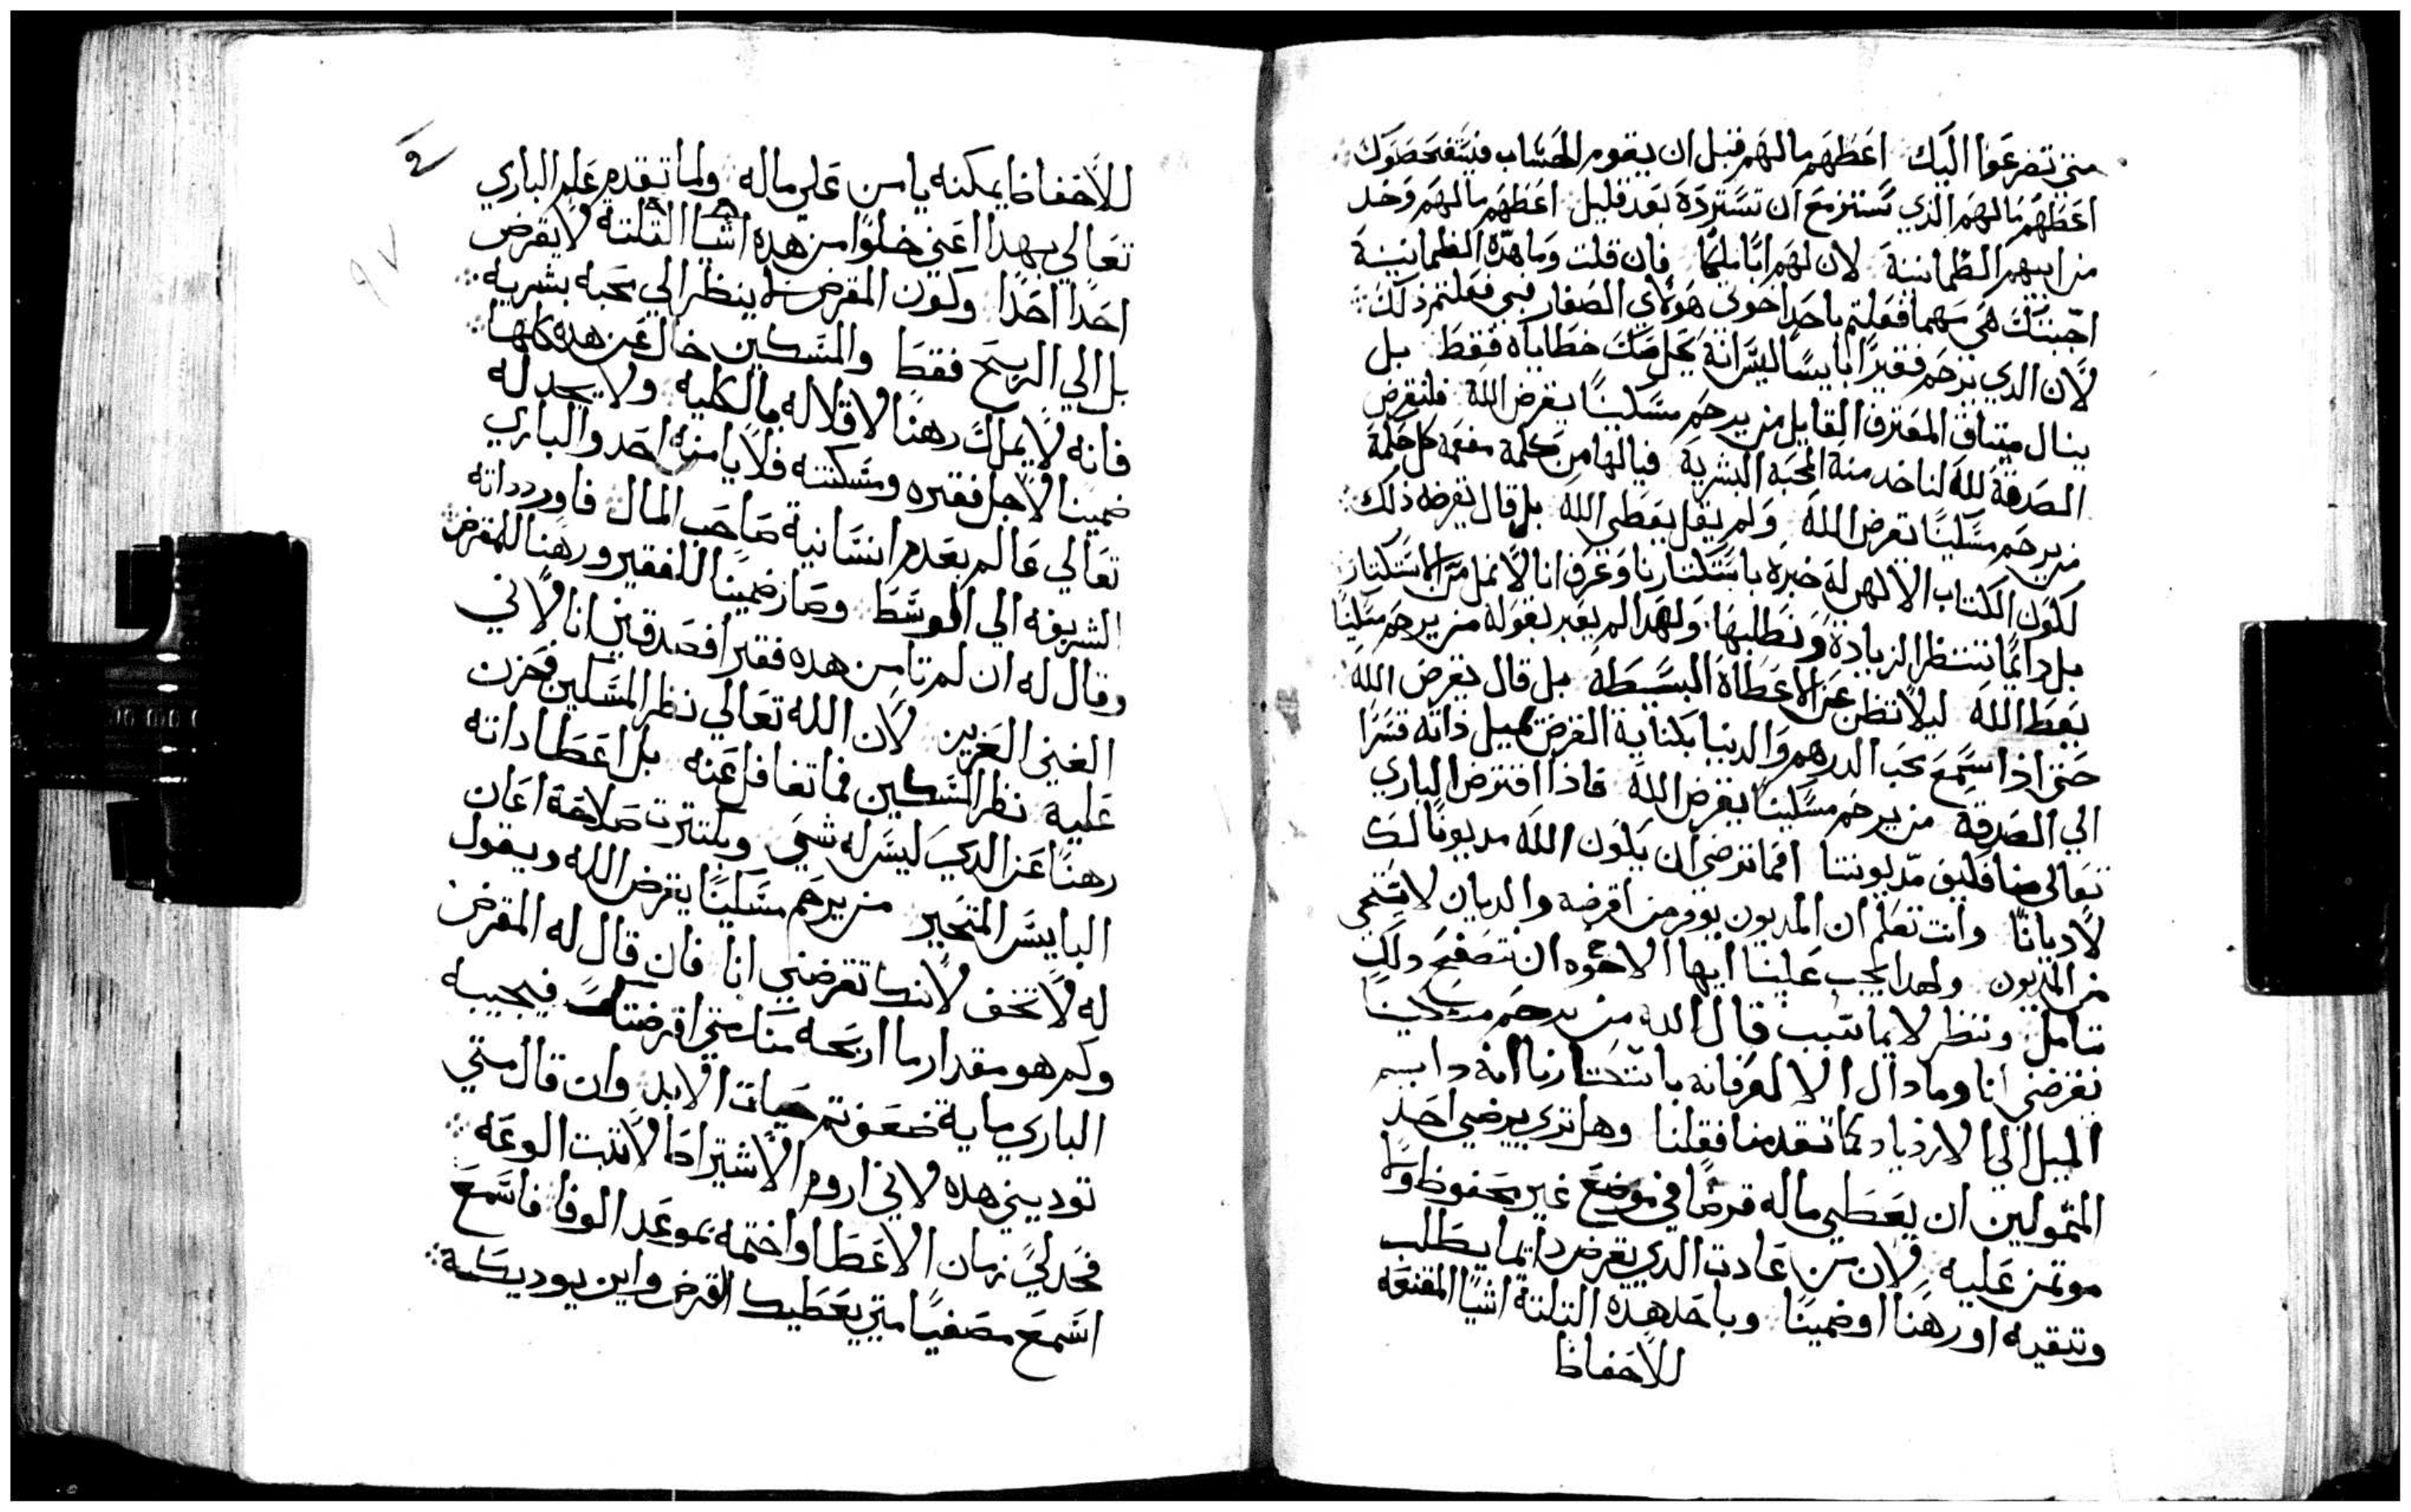 متي تضرعوا اليك اعطهم مالهم قبل ان يقوم الحساب فيتفحصوك
اعطهم مالهم الذي تستزمع ان تسترده بعد قليل اعطهم مالهم وخد
من ابيهم الطمانينة لان لهم ابا مليكا فان قلت وما هذه الطمانينة
اجبتك هي مهما فعلتم باحد اخوتي هولاي الصغار فبي فعلتم ذلك
لان الدي يرحم فقيرا بايسا ليس انه يحل منك خطاياه فقط بل
ينال ميثاق المعترف القايل من يرحم مسكينا يقرض الله فلنقرض
الصدقة لله لناخد منه المحبة البشرية فيالها من كلمة مفعمه كل حكمة
من يرحم مسكينا يقرض الله ولم يقل يعطي الله بل قال يقرضه ذلك
لكون الكتاب الالهي له خبره باستكثارنا وعرف اننا لا نمل من الاستكثار
بل دايما ننتظر الزياده ونطلبها ولهدا لم يعبر بقوله من يرحم مسكينا
يعط الله ليلا تظن عن الاعطاه البسيطة بل قال يقرض الله
حتي اذا سمع محب الدرهم والدنيا بكناية القرض تميل ذاته قسرا
الي الصدقه من يرحم مسكينا يقرض الله فاذا اقترض الباري
تعالي منا فليق مديوننا افما ترضي ان يكون الله مديونا لك
لا ديانا وانت تعلم ان المديون يوقر من اقرضه والديان لا يستحي
من المديون ولهدا يجب علينا ايها الاخوه ان نتصفح ولكي
نتامل وننظر لايما سبب قال الله من يرحم مسكينا
يقرضني انا وما داك الا لعرفانه باستكثارنا انه دايم
الميل الي الازدياد كما تقدمنا فقلنا وهل تري يرضي احد
المتمولين ان يعطي ماله قرضا في موضع غير محفوظ ولا
موتمن عليه فلان من عادت الدي يقرض دايما يطلب
وتنقيه او رهنا او ضمينا وباحد هذه التلتة اشيا المقنعه
للاحفاظ
للاحفاظ يمكنه يامن علي ماله ولما تقدم علم الباري
تعالي بهدا اعني خلوا من هده اشيا التلتة لا يقرض
احدا احدا وكون المقرض لا ينظر الي محبه بشريه
بل الي الربح فقط والمسكين خال عن هده كلها
فانه لا يملك رهنا لاقلاله بالكليه ولا يجد له
ضمينا لاجل فقره ومسكنته فلا يامنه احد والباري
تعالي عالم بعدم انسانية صاحب المال فاورد داته
الشريفه الي الوسط وصار ضمينا للفقير ورهنا للمقرض
وقال له ان لم تامن هده فقيرا فصدقني انا لاني
الغني العزيز لان الله تعالي نظر المسكين فحزن
عليه نظر المسكين فما تغافل عنه بل اعطا داته
رهنا عن الدي ليس له شي وبكثرت صلاحه اعان
البايس المتحير من يرحم مسكينا يقرض الله ويقول
له لا تخف لانك تقرضني انا فان قال له المقرض
وكم هو مقدار ما اربحه منك متي اقرضتك فيجيبه
الباري ماية ضعف تم حيات الابد وان قال متي
توديني هده لاني اروم الاشتراط لاتبت الوعه
فحد لي زمان الاعطا واختمه بموعد الوفا فاسمع
اسمع مصغيا متي يعطيك القرض واين يوديكه
٩٧